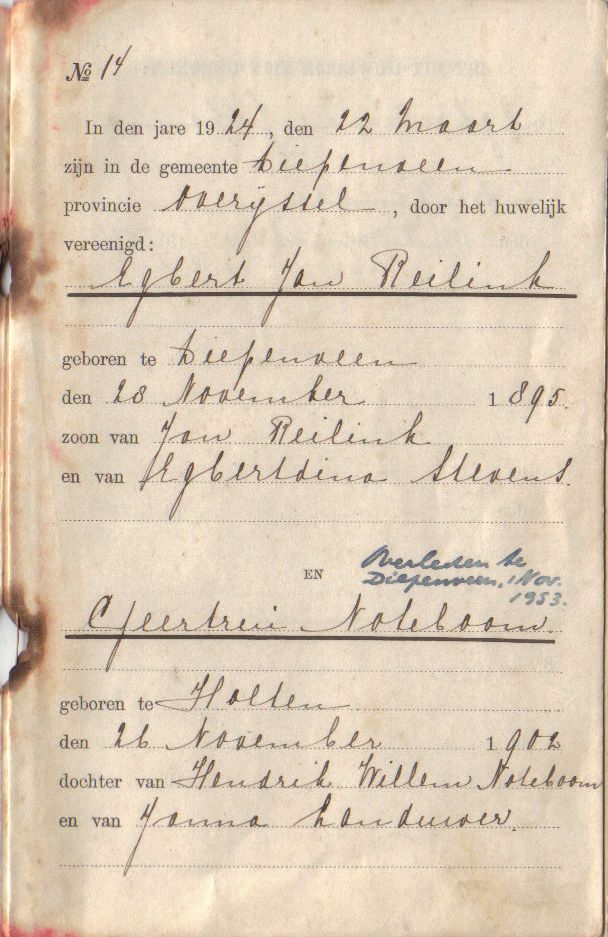 No 14
In den jare 1924, den 22 Maart
zijn in de gemeente Diepenveen
provincie Overijssel, door het huwelijk
vereenigd:
Egbert Jan Reilink
geboren te Diepenveen
den 28 November 1895.
zoon van Jan Reilink
en van Egbertdina Stevens.
Overleden te
EN Diepenveen, 1 Nov.
1953.
Geertrui Noteboom.
geboren te Holten
den 26 November 1902
dochter van Hendrik Willem Noteboom
en van Janna Landuwer.